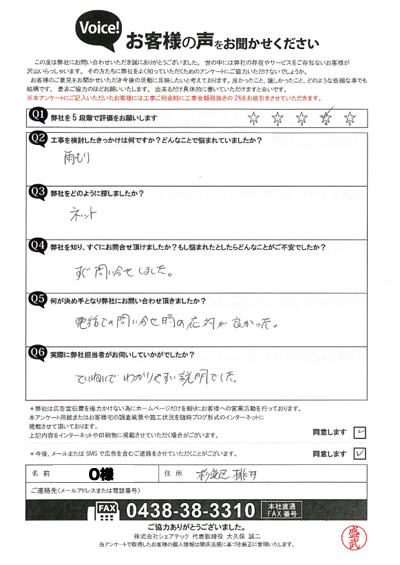 Voice!
お客様の声をお聞かせください
この度は弊社にお問い合わせいただき誠にありがとうございました。世の中には弊社の存在やサービスをご存知ないお客様が
沢山いらっしゃいます。その方たちにも弊社をよく知っていただくためのアンケートにご協力いただけないでしょうか。
お客様のご意見をお聞かせいただき今後の活動に反映したいと考えております。良かったこと、嬉しかったこと、どのような些細な事でも
結構です。是非ご協力のほどお願いいたします。出来るだけ具体的に書いていただけますと幸いです。
※本アンケートにご記入いただいたお客様には工事ご用命時に工事金額税抜きの2%をお値引きさせていただきます。
Q1 弊社を5段階で評価をお願いします
1 2 3 4 5
Q2 工事を検討したきっかけは何ですか?どんなことで悩まれていましたか?
雨もり
Q3 弊社をどのように探しましたか?
ネット
Q4 弊社を知り、すぐにお問合せ頂けましたか?もし悩まれたとしたらどんなことがご不安でしたか?
すぐ問い合せしました。
Q5 何が決め手となり弊社にお問い合わせ頂きましたか?
電話での問い合せ時の応対が良かった。
Q6 実際に弊社担当者がお伺いしていかがでしたか?
ていねいでわかりやすい説明でした。
*弊社は広告宣伝費を極力かけない為にホームページだけを頼りにお客様への営業活動を行っております。
本アンケート用紙またはお客様宅の調査風景や施工状況を随時ブログ形式のインターネットに
掲載させて頂いております。
上記内容をインターネットや印刷物に掲載させていただく場合がございます。 同意します
*今後、メールまたは SMS で広告を含むご連絡をさせていただくことがございます。 同意します
名 前 O様 住 所 杉並区 桃井
ご連絡先(メールアドレスまたは電話番号)
FAX 0438-38-3310 本社直通 FAX番号
ご協力ありがとうございました。
株式会社シェアテック 代表取締役 大久保 誠二
当アンケートで取得したお客様の個人情報は関係法規に基づき厳正に管理いたします。
盛武